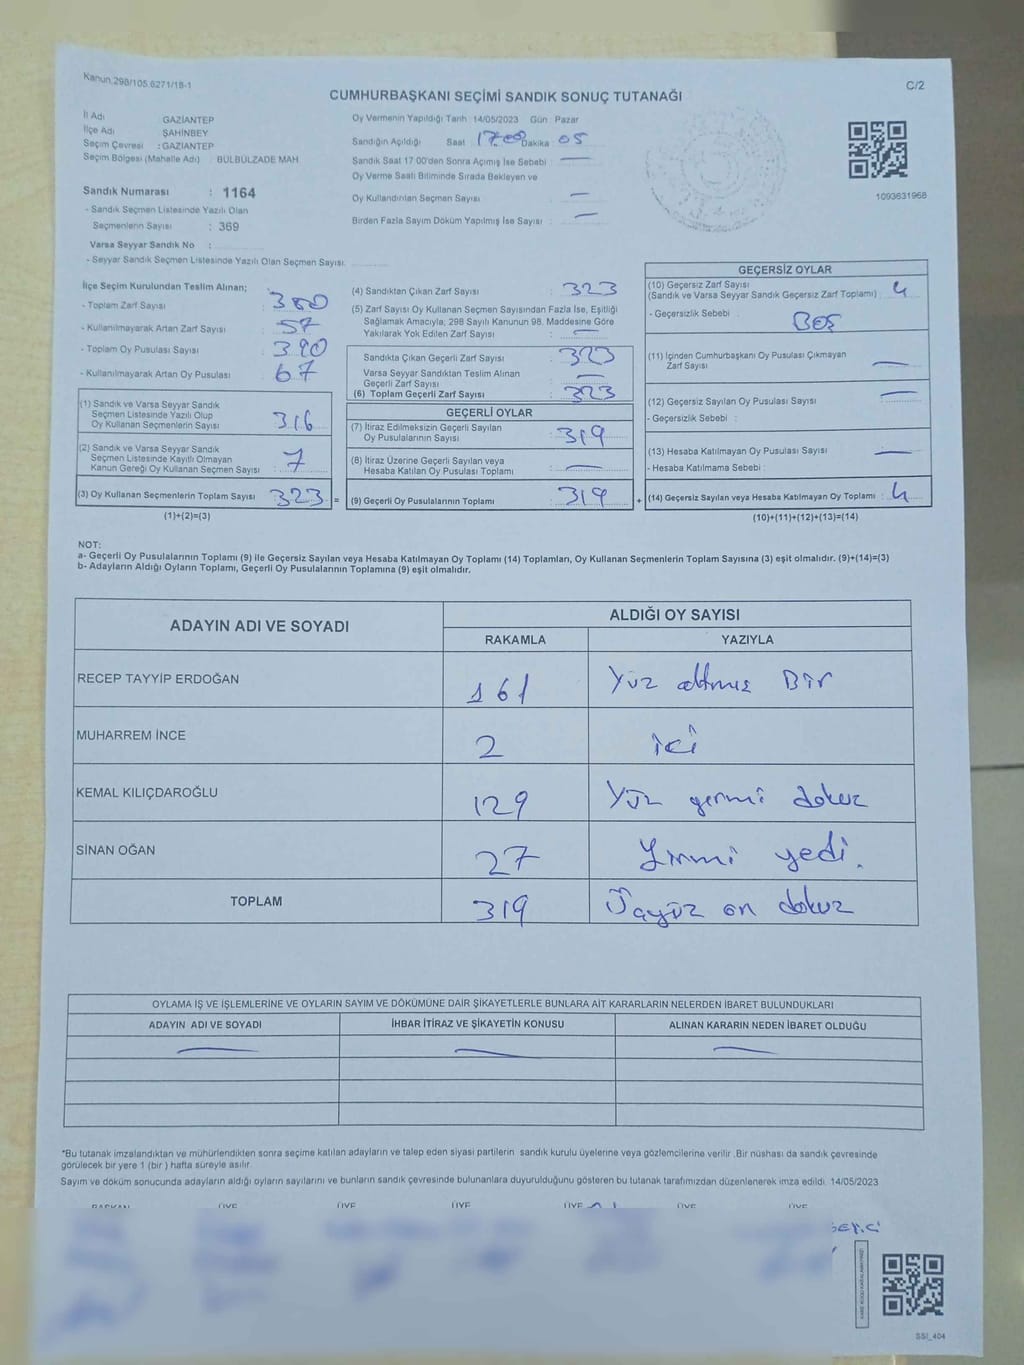 Kanun.298/105.6271/18-1
C/2
CUMHURBAŞKANI SEÇİMİ SANDIK SONUÇ TUTANAĞI
İl Adı GAZİANTEP
İlçe Adı ŞAHİNBEY
Seçim Çevresi : GAZİANTEP
Seçim Bölgesi (Mahalle Adı) : BÜLBÜLZADE MAH
Sandık Numarası : 1164
- Sandık Seçmen Listesinde Yazılı Olan
Seçmenlerin Sayısı : 369
Varsa Seyyar Sandık No :
- Seyyar Sandık Seçmen Listesinde Yazılı Olan Seçmen Sayısı:
Oy Vermenin Yapıldığı Tarih 14/05/2023 Gün Pazar
Sandığın Açıldığı Saat 17.00 Dakika 05
Sandık Saat 17:00'den Sonra Açımış İse Sebebi : —
Oy Verme Saati Bitiminde Sırada Bekleyen ve
Oy Kullandırılan Seçmen Sayısı : —
Birden Fazla Sayım Döküm Yapılmış İse Sayısı : —
1093631968
İlçe Seçim Kurulundan Teslim Alınan;
- Toplam Zarf Sayısı : 380
- Kullanılmayarak Artan Zarf Sayısı : 57
- Toplam Oy Pusulası Sayısı : 390
- Kullanılmayarak Artan Oy Pusulası : 67
(1) Sandık ve Varsa Seyyar Sandık
Seçmen Listesinde Yazılı Olup
Oy Kullanan Seçmenlerin Sayısı : 316
(2) Sandık ve Varsa Seyyar Sandık
Seçmen Listesinde Kayıtlı Olmayan
Kanun Gereği Oy Kullanan Seçmen Sayısı : 7
(3) Oy Kullanan Seçmenlerin Toplam Sayısı : 323 =
(1)+(2)=(3)
(4) Sandıktan Çıkan Zarf Sayısı : 323
(5) Zarf Sayısı Oy Kullanan Seçmen Sayısından Fazla İse, Eşitliği
Sağlamak Amacıyla; 298 Sayılı Kanunun 98. Maddesine Göre
Yakılarak Yok Edilen Zarf Sayısı : —
Sandıkta Çıkan Geçerli Zarf Sayısı : 323
Varsa Seyyar Sandıktan Teslim Alınan
Geçerli Zarf Sayısı : —
(6) Toplam Geçerli Zarf Sayısı : 323
GEÇERLİ OYLAR
(7) İtiraz Edilmeksizin Geçerli Sayılan
Oy Pusulalarının Sayısı : 319
(8) İtiraz Üzerine Geçerli Sayılan veya
Hesaba Katılan Oy Pusulası Toplamı : —
(9) Geçerli Oy Pusulalarının Toplamı : 319 +
GEÇERSİZ OYLAR
(10) Geçersiz Zarf Sayısı
(Sandık ve Varsa Seyyar Sandık Geçersiz Zarf Toplamı) : 4
- Geçersizlik Sebebi : BOŞ
(11) İçinden Cumhurbaşkanı Oy Pusulası Çıkmayan
Zarf Sayısı : —
(12) Geçersiz Sayılan Oy Pusulası Sayısı : —
- Geçersizlik Sebebi :
(13) Hesaba Katılmayan Oy Pusulası Sayısı : —
- Hesaba Katılmama Sebebi :
(14) Geçersiz Sayılan veya Hesaba Katılmayan Oy Toplamı : 4
(10)+(11)+(12)+(13)=(14)
NOT:
a- Geçerli Oy Pusulalarının Toplamı (9) ile Geçersiz Sayılan veya Hesaba Katılmayan Oy Toplamı (14) Toplamları, Oy Kullanan Seçmenlerin Toplam Sayısına (3) eşit olmalıdır. (9)+(14)=(3)
b- Adayların Aldığı Oyların Toplamı, Geçerli Oy Pusulalarının Toplamına (9) eşit olmalıdır.
ADAYIN ADI VE SOYADI
ALDIĞI OY SAYISI
RAKAMLA YAZIYLA
RECEP TAYYİP ERDOĞAN 161 Yüz altmış Bir
MUHARREM İNCE 2 iki
KEMAL KILIÇDAROĞLU 129 Yüz yermi dokuz
SİNAN OĞAN 27 Yirmi yedi.
TOPLAM 319 Üçyüz on dokuz
OYLAMA İŞ VE İŞLEMLERİNE VE OYLARIN SAYIM VE DÖKÜMÜNE DAİR ŞİKAYETLERLE BUNLARA AİT KARARLARIN NELERDEN İBARET BULUNDUKLARI
ADAYIN ADI VE SOYADI İHBAR İTİRAZ VE ŞİKAYETİN KONUSU ALINAN KARARIN NEDEN İBARET OLDUĞU
— — —
*Bu tutanak imzalandıktan ve mühürlendikten sonra seçime katılan adayların ve talep eden siyasi partilerin sandık kurulu üyelerine veya gözlemcilerine verilir .Bir nüshası da sandık çevresinde
görülecek bir yere 1 (bir ) hafta süreyle asılır.
Sayım ve döküm sonucunda adayların aldığı oyların sayılarını ve bunların sandık çevresinde bulunanlara duyurulduğunu gösteren bu tutanak tarafımızdan düzenlenerek imza edildi. 14/05/2023
BAŞKAN ÜYE ÜYE ÜYE ÜYE ÜYE ÜYE
SSI_404